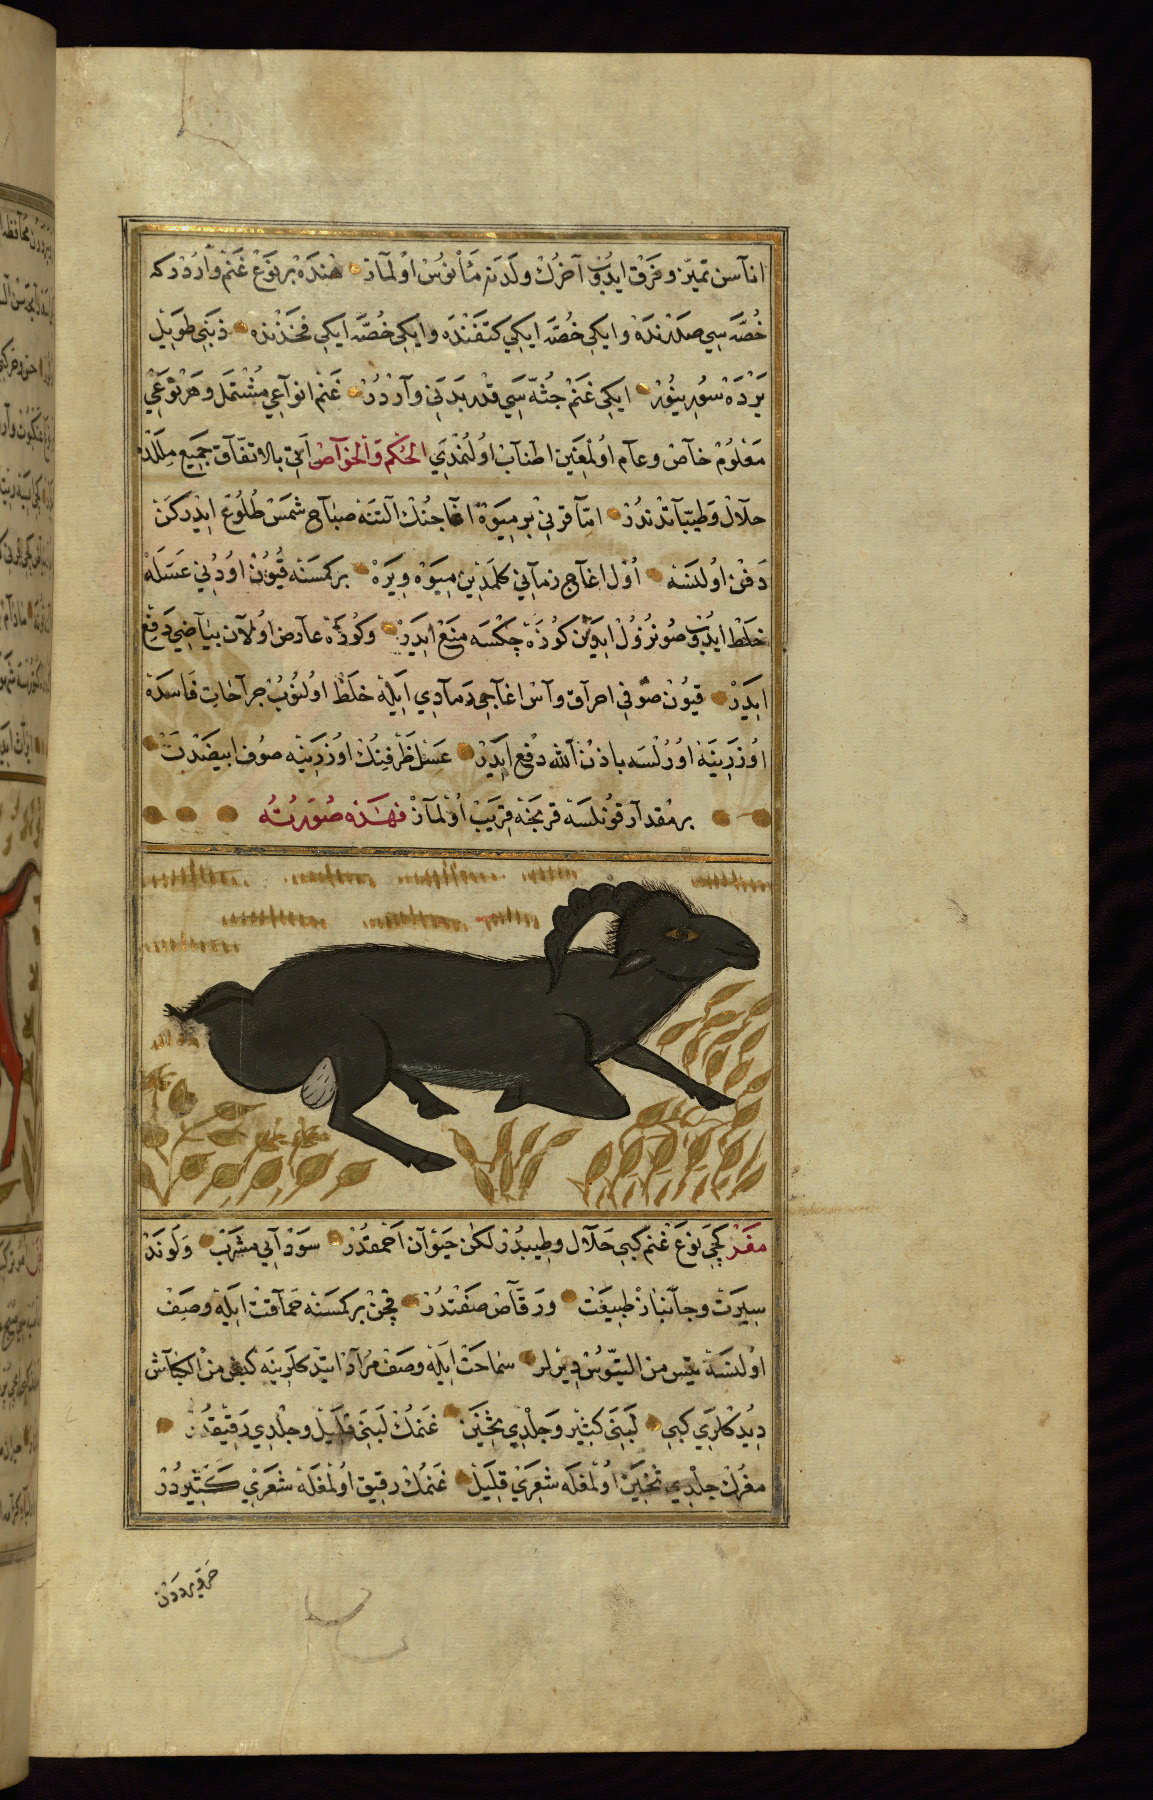 اناسن تميز و فرق ايدوب آخرك ولدنه مأنوس اولماز هندده بر نوع غنم واردر كه
خصه سي صدرنده و ايكي خصه ايكي كتفنده و ايكي خصه ايكي فخذنده ذنبي طويل
يرده سورينور ايكي غنم جثه سي قدر بدني واردر غنم انواعي مشتمل و هر نوعي
معلوم خاص و عام اولمغين اطناب اولنمدي الحكم و الخواص اتي بالاتفاق جميع مللده
حلال و طيباتدندر اما قرني بر ميوه اغاجنك التنه صباح شمس طلوع ايدركن
دفن اولنسه اول اغاج زماني كلمدين ميوه ويره بر كمسنه قيون اودني عسله
خلط ايدوب صو نزول ايدين كوزه چكسه منع ايدر و كوزه عارض اولان بياضي دفع
ايدر قيون صوفي احراق و آس اغاجي رمادي ايله خلط اولنوب جراحات فاسده
اوزرينه اورلسه باذن الله دفع ايدر عسل ظرفنك اوزرينه صوف ابيضدن
بر مقدار قونلسه قرنجه قريب اولماز فهذه صورته
معز كچي نوع غنم كبي حلال و طيبدر لكن حيوان احمقدر سوداءي مشرب و لوند
سيرت و جانباز طبيعت و رقاص صفتدر قچن بر كمسنه حماقت ايله وصف
اولنسه تيس من التيوس ديرلر سماحت ايله وصف مراد ايتدكلرينه كبش من الكباش
ديدكلري كبي لبني كثير و جلدي ثخين غنمك لبني قليل و جلدي رقيقدر
معزك جلدي ثخين اولمغله شعري قليل غنمك رقيق اولمغله شعري كثيردر